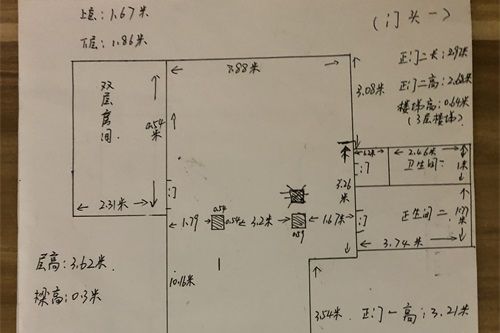 上层:1.67米
下层:1.86米
(门头一)
双层房间
6.54米
2.31米
7.88米
3.08米
正门二长:2.97米
正门二高:2.62米
楼梯高:0.64米
(3层楼梯)
2.46米
卫生间一
1米
门
3.26米
门
1.79
0.54
0.54
3.2米
0.59
1.67米
门
正卫生间二
3.74米
层高:3.62米
梁高:0.3米
10.16米
3.54米
正门一高:3.21米